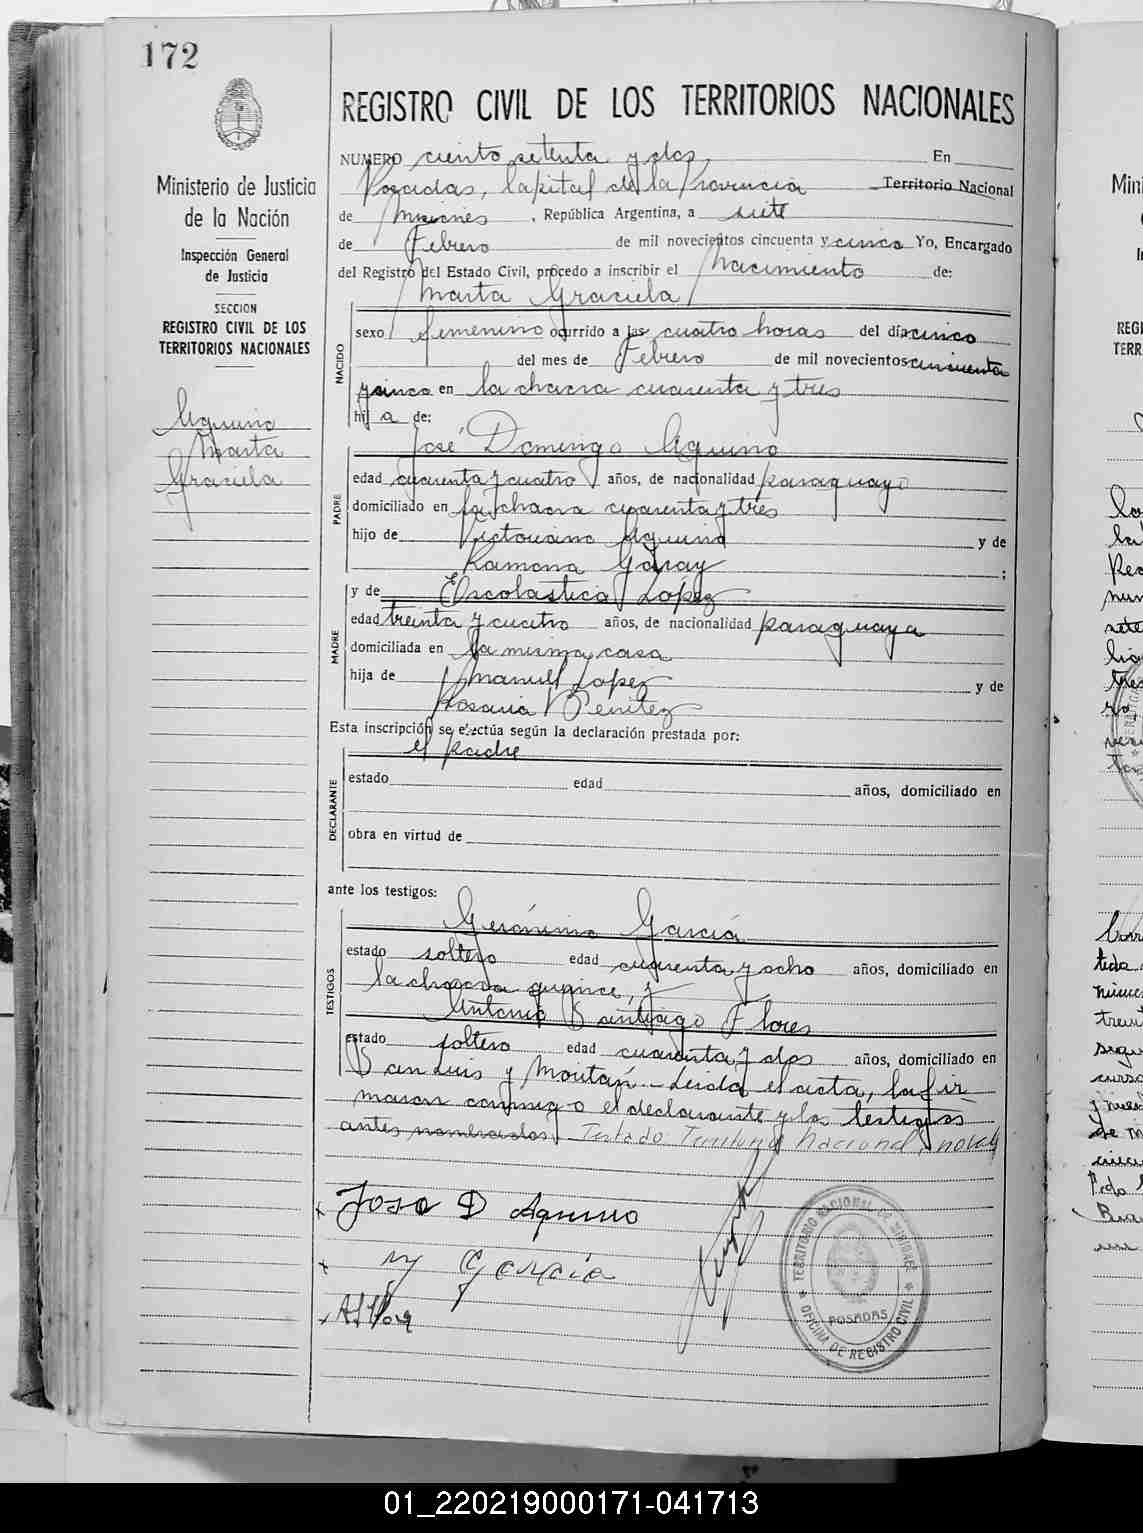 172
REGISTRO CIVIL DE LOS TERRITORIOS NACIONALES
Ministerio de Justicia
de la Nación
Inspección General
de Justicia
SECCION
REGISTRO CIVIL DE LOS
TERRITORIOS NACIONALES
Aquino
Marta
Graciela
NUMERO ciento setenta y dos En
Posadas, Capital de la Provincia Territorio Nacional
de Misiones, República Argentina, a siete
de Febrero de mil novecientos cincuenta y cinco Yo, Encargado
del Registro del Estado Civil, procedo a inscribir el Nacimiento de:
Marta Graciela
NACIDO
sexo femenino ocurrido a las cuatro horas del día cinco
del mes de Febrero de mil novecientos cincuenta
y cinco en la chacra cuarenta y tres
hija de:
José Domingo Aquino
PADRE
edad cuarenta y cuatro años, de nacionalidad paraguayo
domiciliado en la chacra cuarenta y tres
hijo de Victoriano Aquino y de
Ramona Garay ;
y de Escolastica López
MADRE
edad treinta y cuatro años, de nacionalidad paraguaya
domiciliada en la misma casa
hija de Manuel López y de
Rosaria Benítez
Esta inscripción se efectúa según la declaración prestada por:
el padre
DECLARANTE
estado edad años, domiciliado en
obra en virtud de
ante los testigos:
Gerónimo García
TESTIGOS
estado soltero edad cuarenta y ocho años, domiciliado en
la chacra quince, y
Antonio Santiago Flores
estado soltero edad cuarenta y dos años, domiciliado en
San Luis y Moritán. Leida el acta, la fir
maron conmigo el declarante y los testigos
antes nombrados. Testado Territorio Nacional, no vale
x Jose D Aquino
x García
x
TERRITORIO NACIONAL DE MISIONES
POSADAS
OFICINA DE REGISTRO CIVIL
01_220219000171-041713